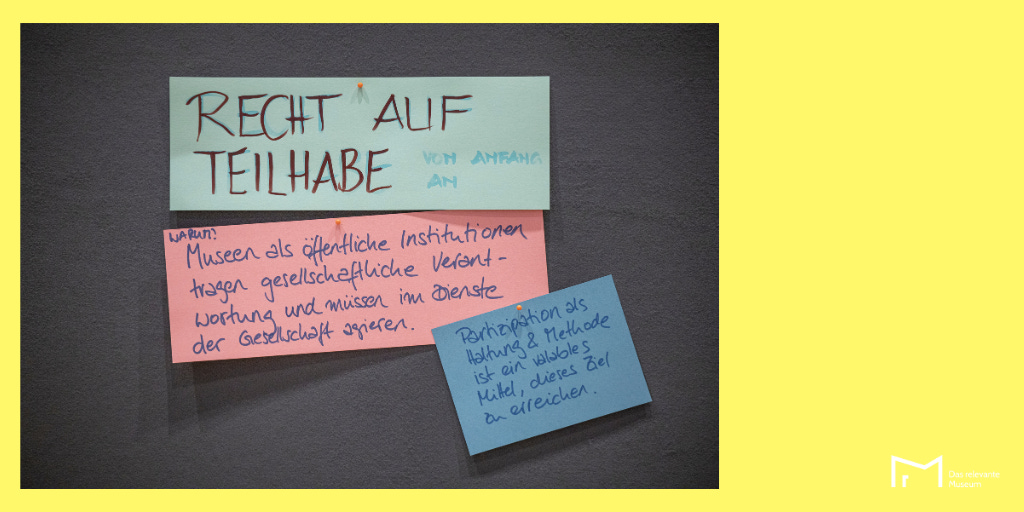 RECHT AUF
TEILHABE VON ANFANG
AN
WARUM?
Museen als öffentliche Institutionen
tragen gesellschaftliche Verant-
wortung und müssen im Dienste
der Gesellschaft agieren.
Partizipation als
Haltung & Methode
ist ein valables
Mittel, dieses Ziel
zu erreichen.
Das relevante
Museum